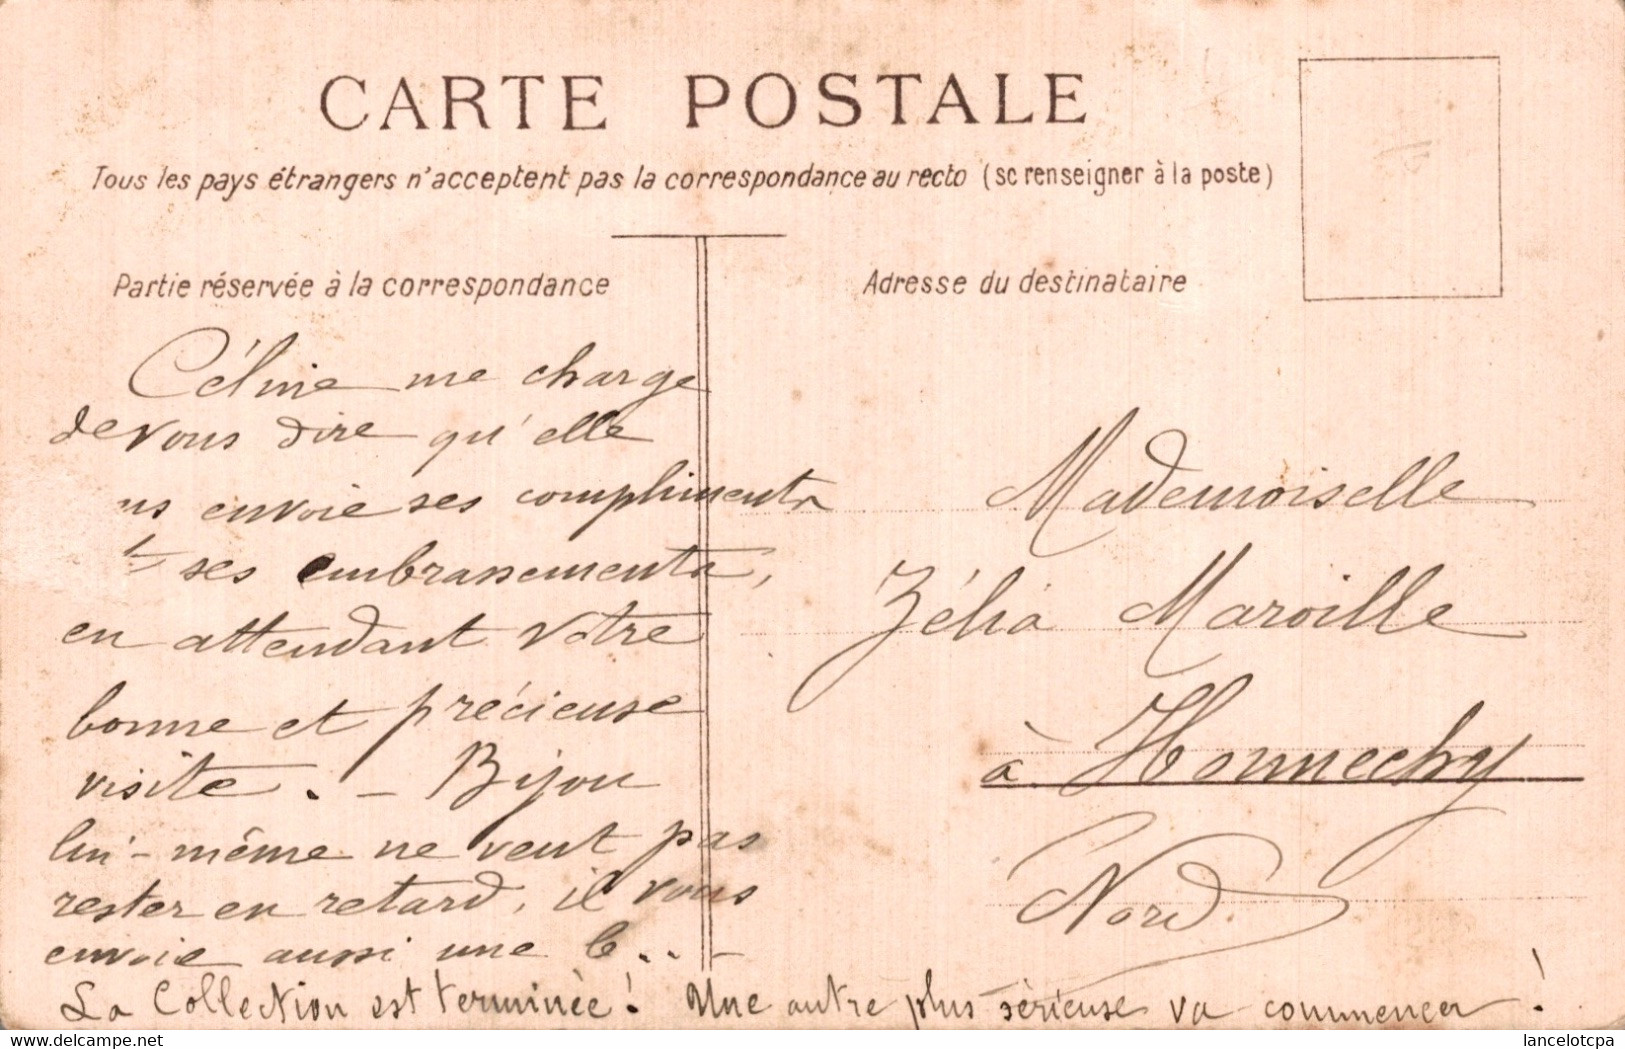 CARTE POSTALE
Tous les pays étrangers n'acceptent pas la correspondance au recto (se renseigner à la poste)
Partie réservée à la correspondance
Adresse du destinataire
Céline me charge
de vous dire qu'elle
vs envoie ses compliments
& ses embrassements,
en attendant votre
bonne et précieuse
visite. — Bijou
lui-même ne veut pas
rester en retard, il vous
envoie aussi une b...
La Collection est terminée! Une autre plus sérieuse va commencer!
Mademoiselle
Zélia Maroille
à Honnechy
Nord.
lancelotcpa